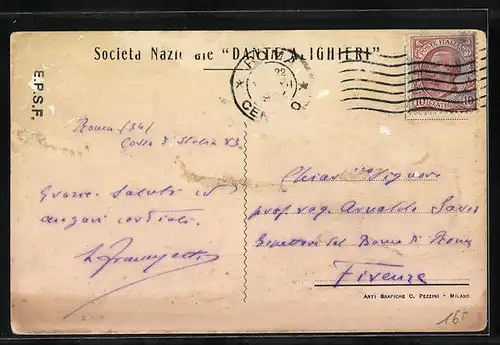 Societa Nazionale "DANTE ALIGHIERI"
E.P.S.F.
ROMA
POSTE ITALIANE
10 CENTESIMI 10
Roma (34)
Corso d'Italia 83
Grazie saluti ed
auguri cordiali.
Chiar. Signore
prof. rag. Arnaldo
Direttore del Banco di Roma
Firenze
ARTI GRAFICHE C. PEZZINI - MILANO
165